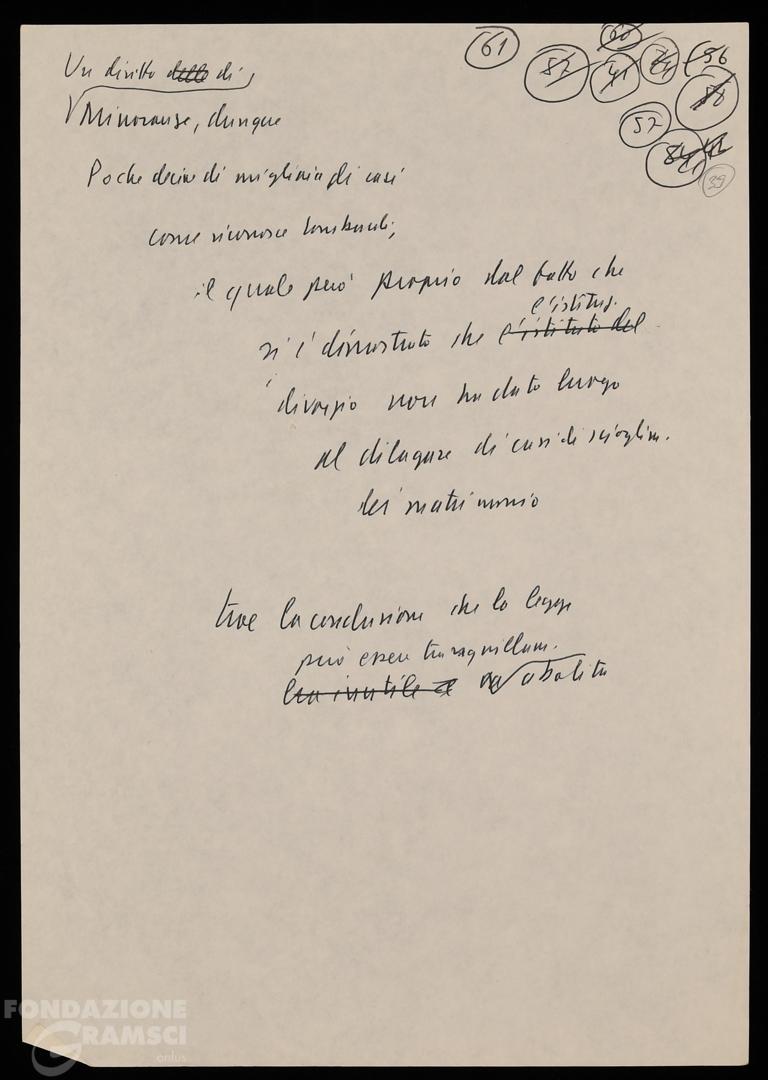 61
60
52
41
24
56
58
57
84
42
39
Un diritto delle di
Minoranze, dunque
Poche decine di migliaia di casi
come riconosce Lombardi,
il quale però proprio dal fatto che
l'istitut.
si è dimostrato che l'istituto del
divorzio non ha dato luogo
al dilagare di casi di sioglim.
del matrimonio
trae la conclusione che la legge
può essere tranquillam.
era inutile e abolita
FONDAZIONE
GRAMSCI
onlus